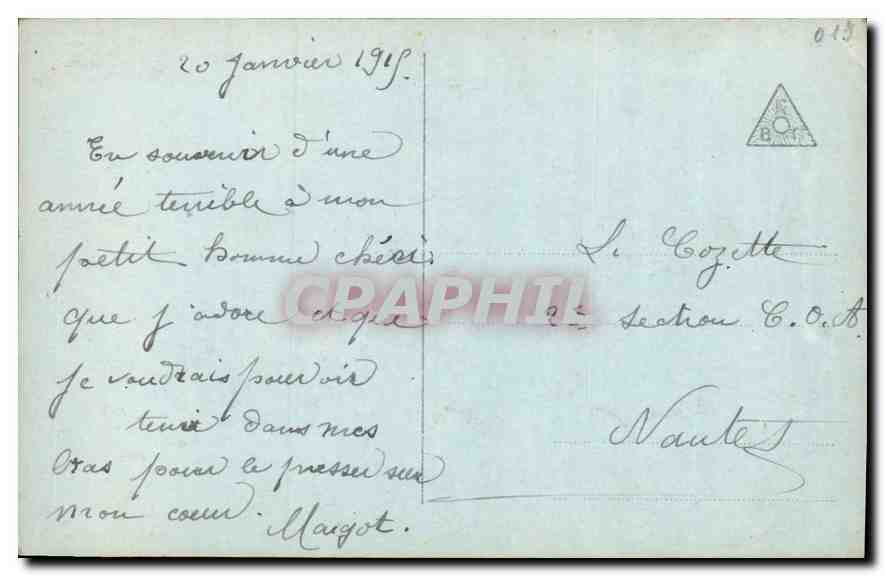 013
20 Janvier 1915.
En souvenir d'une
année terrible à mon
petit homme chéri.
que j'adore et que
je voudrais pouvoir
tenir dans mes
bras pour le presser sur
mon coeur.
Margot.
Le Cozette
2e section C.O.A
Nantes
CPAPHIL